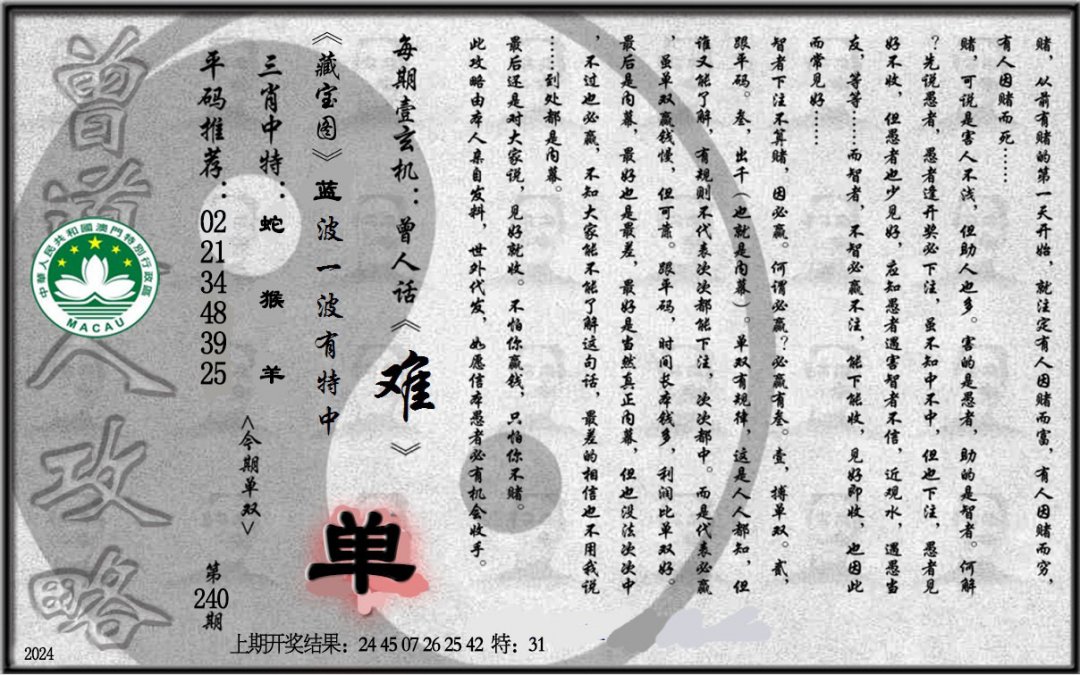 赌，从前有赌的第一天开始，就注定有人因赌而富，有人因赌而穷，
有人因赌而死……
赌，可说是害人不浅，但助人也多。害的是愚者，助的是智者。何解
？先说愚者，愚者逢开奖必下注，虽不知中不中，但也下注，愚者见
好不收，但愚者也少见好，应知愚者遇害智者不信，近观水，遇愚当
友，等等……而智者，不智必赢不注，能下能收，见好即收，也因此
而常见好……
智者下注不算赌，因必赢。何谓必赢？必赢有叁。壹，搏单双。贰，
跟平码。叁，出千（也就是内幕）。单双有规律，这是人人都知，但
谁又能了解，有规则不代表次次都能下注，次次都中。而是代表必赢
，虽单双赢钱慢，但可靠。跟平码，时间长本钱多，利润比单双好。
最后是内幕，最好也是最差，最好是当然真正内幕，但也没法次次中
，不过也必赢，不知大家能不能了解这句话，最差的相信也不用我说
……到处都是内幕。
最后还是对大家说，见好就收。不怕你赢钱，只怕你不赌。
此攻略由本人亲自发料，世外代发，如愿信本愚者必有机会收手。
每期壹玄机：曾人话《难》
《藏宝图》蓝波一波有特中
三肖中特：蛇 猴 羊
平码推荐：02 21 34 48 39 25
<今期单双>
单
第240期
曾道人攻略
中華人民共和國澳門特別行政區
MACAU
上期开奖结果：24 45 07 26 25 42 特：31
2024